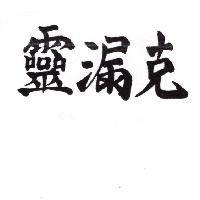 靈漏克